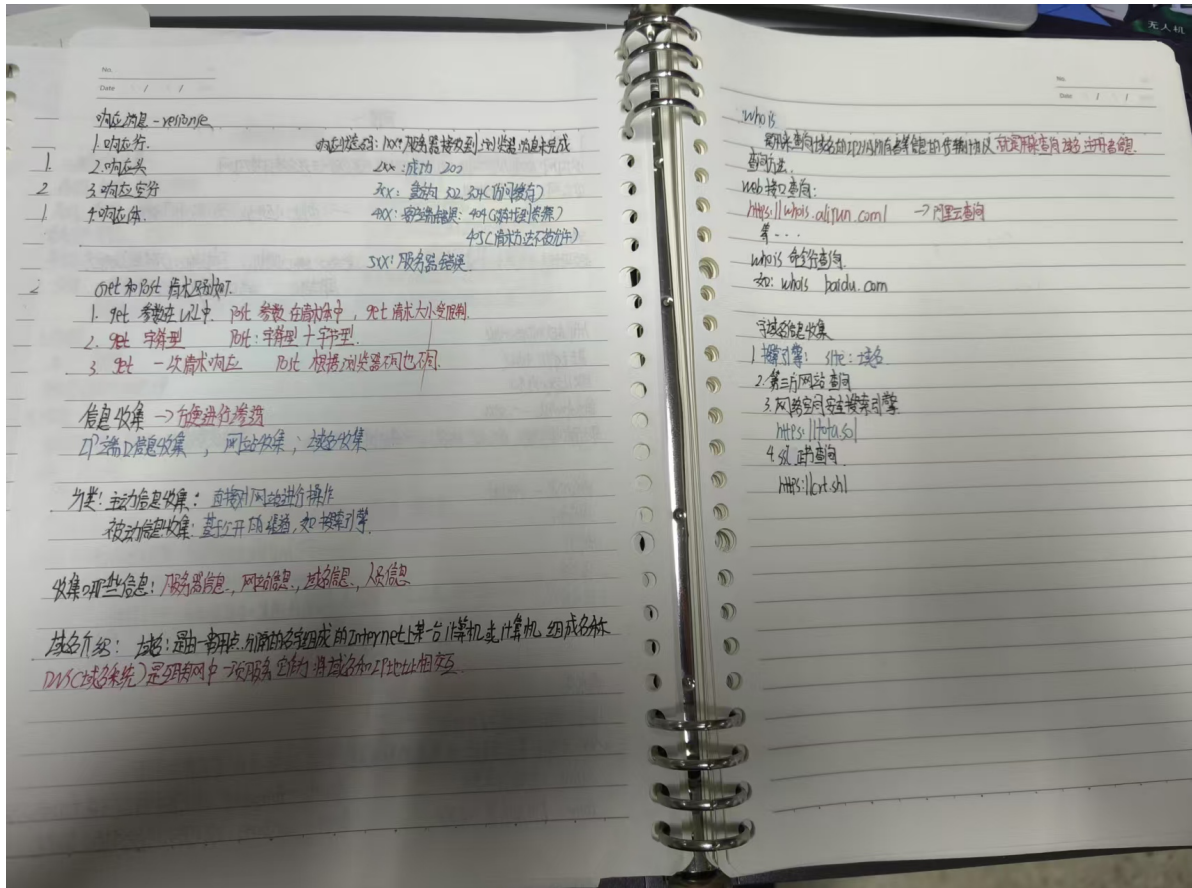 No.
Date / /
响应消息-response
1.响应行.
响应状态码:1xx:服务器接收到浏览器消息未完成
2.响应头
2xx:成功 200
3.响应空行
3xx:重定向 302.304(访问缓存)
4.响应体.
4xx:客户端错误:404(找不到资源)
405(请求方法不被允许)
5xx:服务器错误.
Get和Post请求区别如下.
1. get 参数在url中. Post 参数在请求体中,get请求大小受限制.
2. get 字符型 Post:字符型十字节型.
3. get 一次请求响应 Post 根据浏览器不同也不同.
信息收集→方便进行渗透
IP端口信息收集,网站收集,域名收集
分类:主动信息收集:直接对网站进行操作
被动信息收集:基于公开的渠道,如搜索引擎.
收集哪些信息:服务器信息.,网站信息.,域名信息.,人员信息
域名介绍: 域名:是由一串用点.分隔的名字组成的Internet上某一台计算机或计算机组成名称
DNS(域名系统)是互联网中一项服务它作为将域名和IP地址相交互
1.
2
1
2
无人机
No.
Date / /
whois
是用来查询域名的IP以及所有者等信息的传输协议 就是用来查询域名注册者信息.
查询方法.
Web接口查询:
https://whois.aliyun.com/ →阿里云查询
等...
whois 命令行查询.
如: whois baidu.com
子域名信息收集
1.搜索引擎: site:域名
2.第三方网站查询
3.网络空间安全搜索引擎.
https://fofa.so/
4.SSL证书查询.
https://crt.sh/